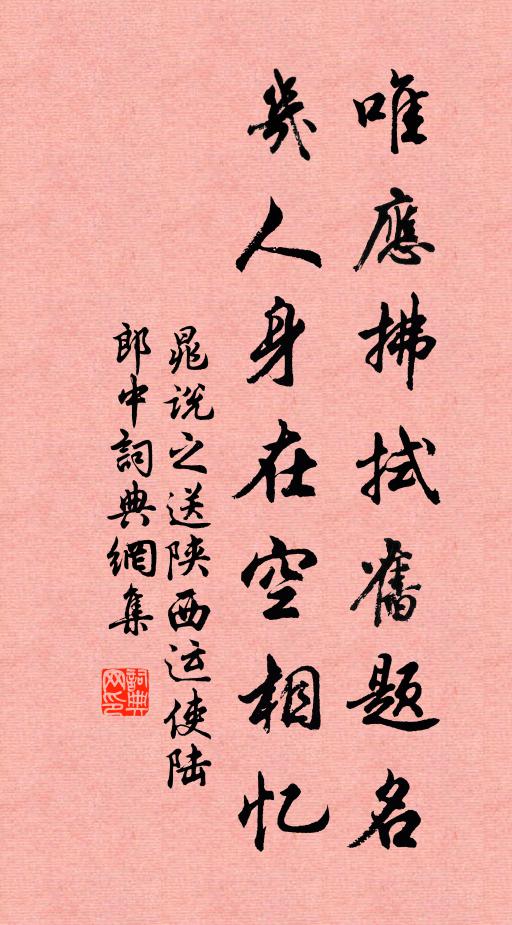 唯應拂拭舊题名
幾人身在空相忆
晁说之送陕西运使陆
郎中詞典網集
詞典网印